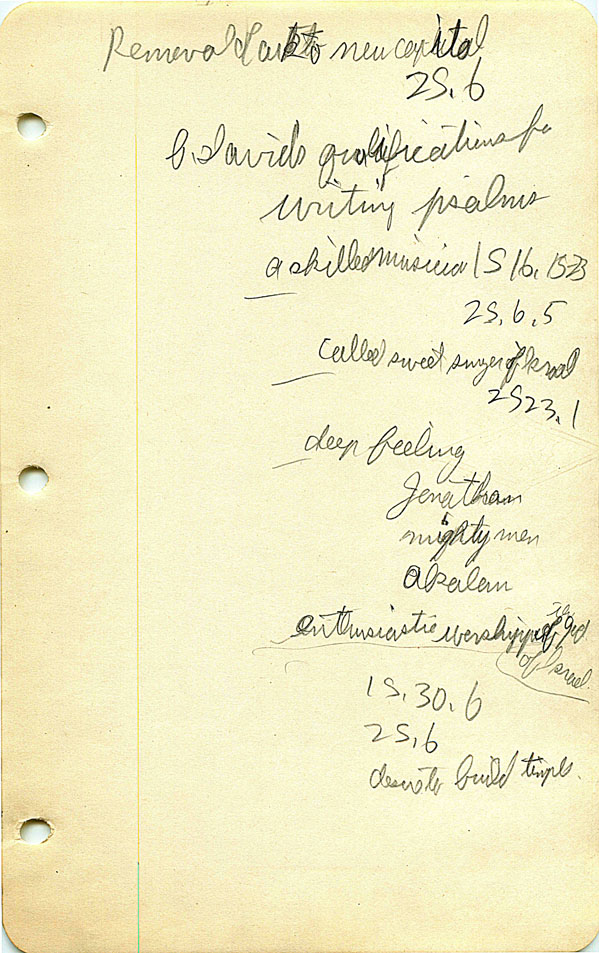 Removal of ark to new capital
2S. 6
6. Davids qualifications for
writing psalms
a skilled musician 1 S 16. 1523
2S. 6. 5
called sweet singer of Israel
2S 23. 1
deep feeling
Jonathan
mighty men
enthusiastic worshipper of
God
of Israel
1S. 30. 6
2S. 6
desire to build temple.